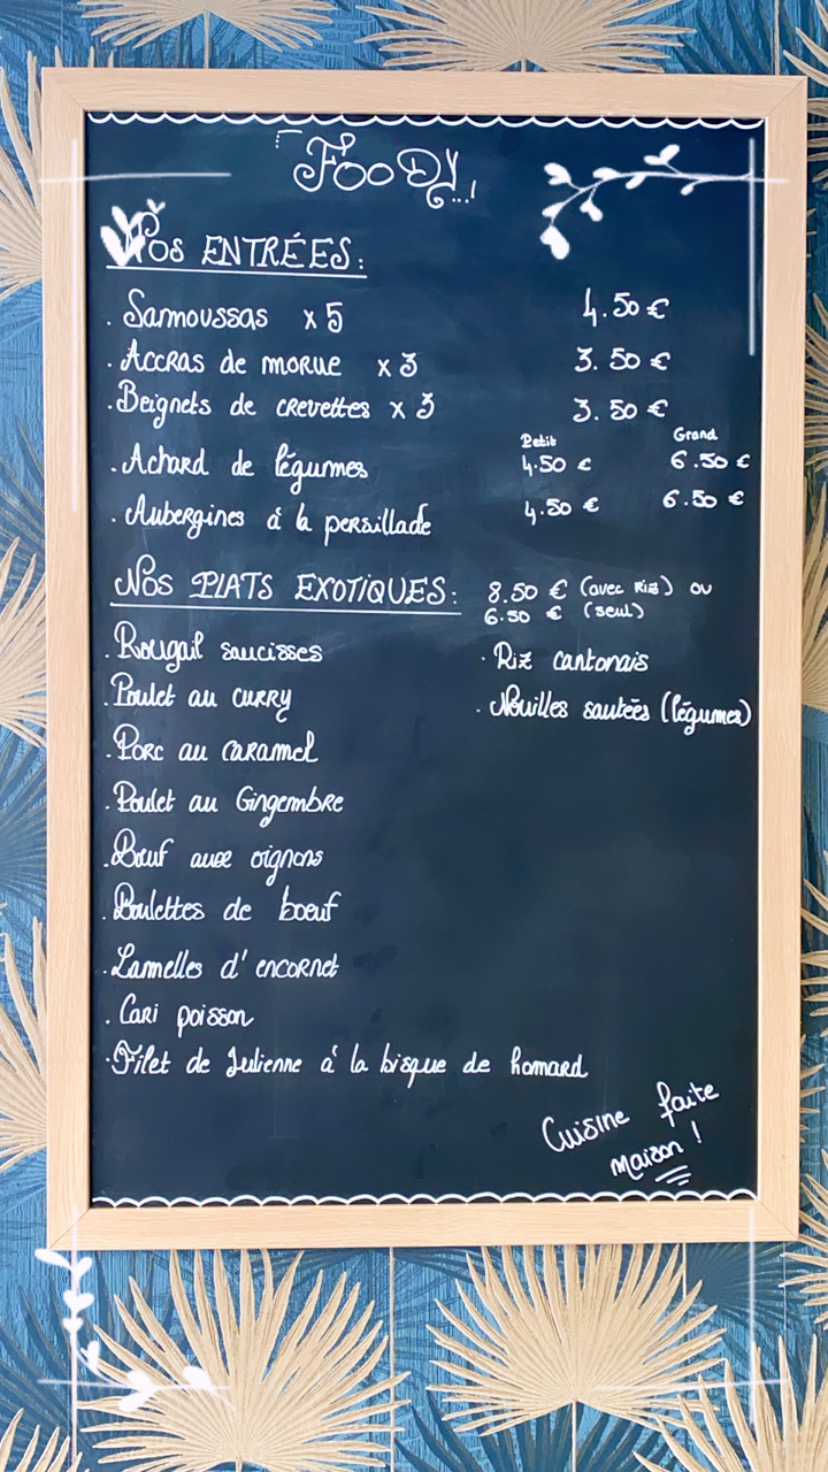 Foody...!
Nos ENTRÉES:
. Samoussas x 5 4.50 €
. Accras de morue x 3 3.50 €
. Beignets de crevettes x 3 3.50 €
Petit Grand
. Achard de légumes 4.50 € 6.50 €
. Aubergines à la persillade 4.50 € 6.50 €
Nos PLATS EXOTIQUES: 8.50 € (avec Riz) ou
6.50 € (seul)
. Rougail saucisses
. Poulet au curry
. Porc au caramel
. Poulet au Gingembre
. Bœuf aux oignons
. Boulettes de bœuf
. Lamelles d'encornet
. Cari poisson
. Filet de Julienne à la bisque de homard
. Riz cantonais
. Nouilles sautées (légumes)
Cuisine faite
maison !